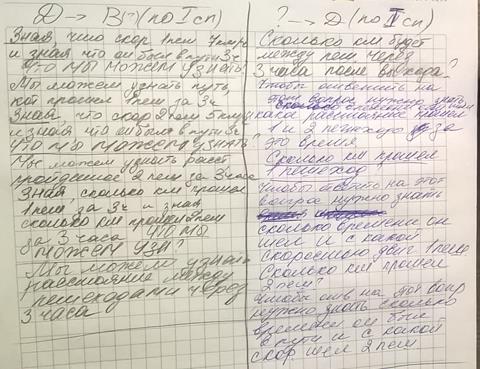 Д → В(?) (по I сп)
Зная что скор 1 пеш 7 км/ч
и зная что он был в пути 3ч
Что мы можем узнать?
Мы можем узнать путь,
кот прошел 1 пеш за 3ч
Зная, что скор 2 пеш 5 км/ч
и зная что он был в пути 3ч
что мы можем узнать?
Мы можем узнать расст
пройденное 2 пеш за 3 часа
Зная сколько км прошел
1 пеш за 3ч и зная
сколько км прошел 2 пеш
за 3 часа что мы
можем узн?
Мы можем узнать
расстояние между
пешеходами через
3 часа
? → Д (по II сп)
Сколько км будет
между пеш через
3 часа после выхода?
Чтобы ответить на
этот вопрос нужно знать
какое расстояние прошел
1 и 2 пешеход за
это время
Сколько км прошел
1 пешеход
Чтобы ответить на этот
вопрос нужно знать
сколько времени он
шел и с какой
скоростью двиг 1 пеш
Сколько км прошел
2 пеш?
Чтобы отв на этот вопр
нужно знать сколько
времени он был
в пути и с какой
скор шел 2 пеш